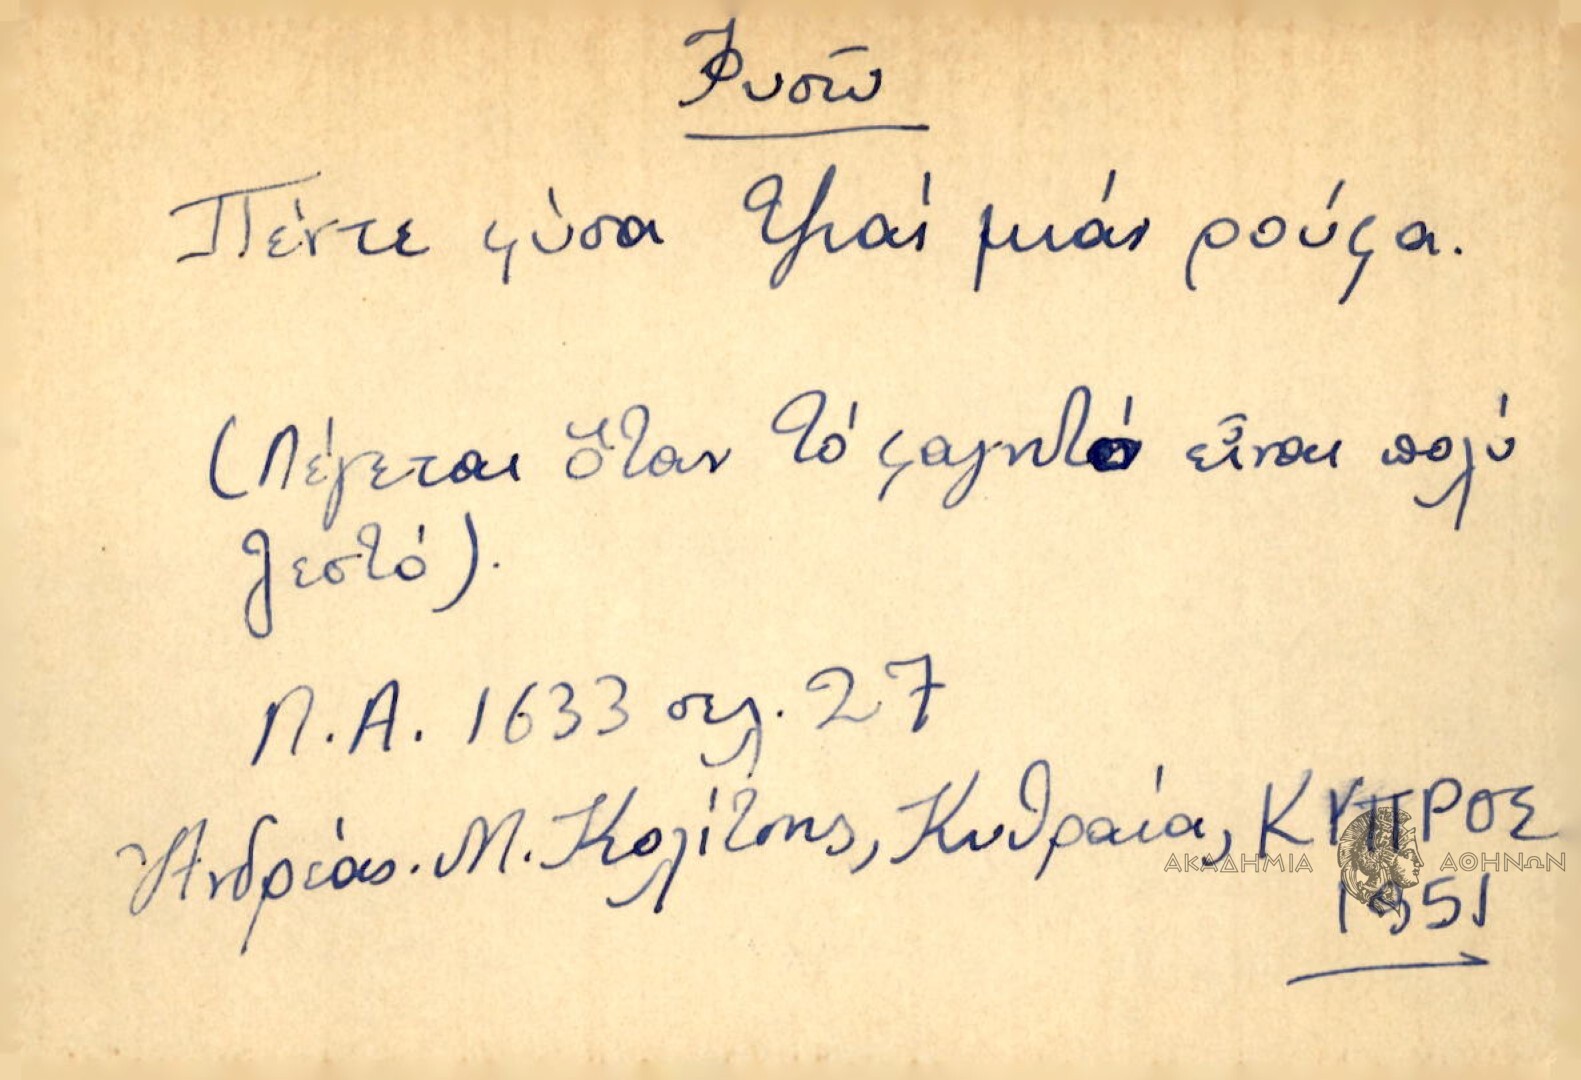 Φυσῶ
Πέντε φύσα τζιαί μιάν ρούφα.
(Λέγεται ὅταν τό φαγητό εἶναι πολύ
ζεστό).
Λ.Α. 1633 σελ. 27
Ἀνδρέας. Μ. Κολίτσης, Κυθραία, ΚΥΠΡΟΣ
ΑΚΑΔΗΜΙΑ ΑΘΗΝΩΝ
1951